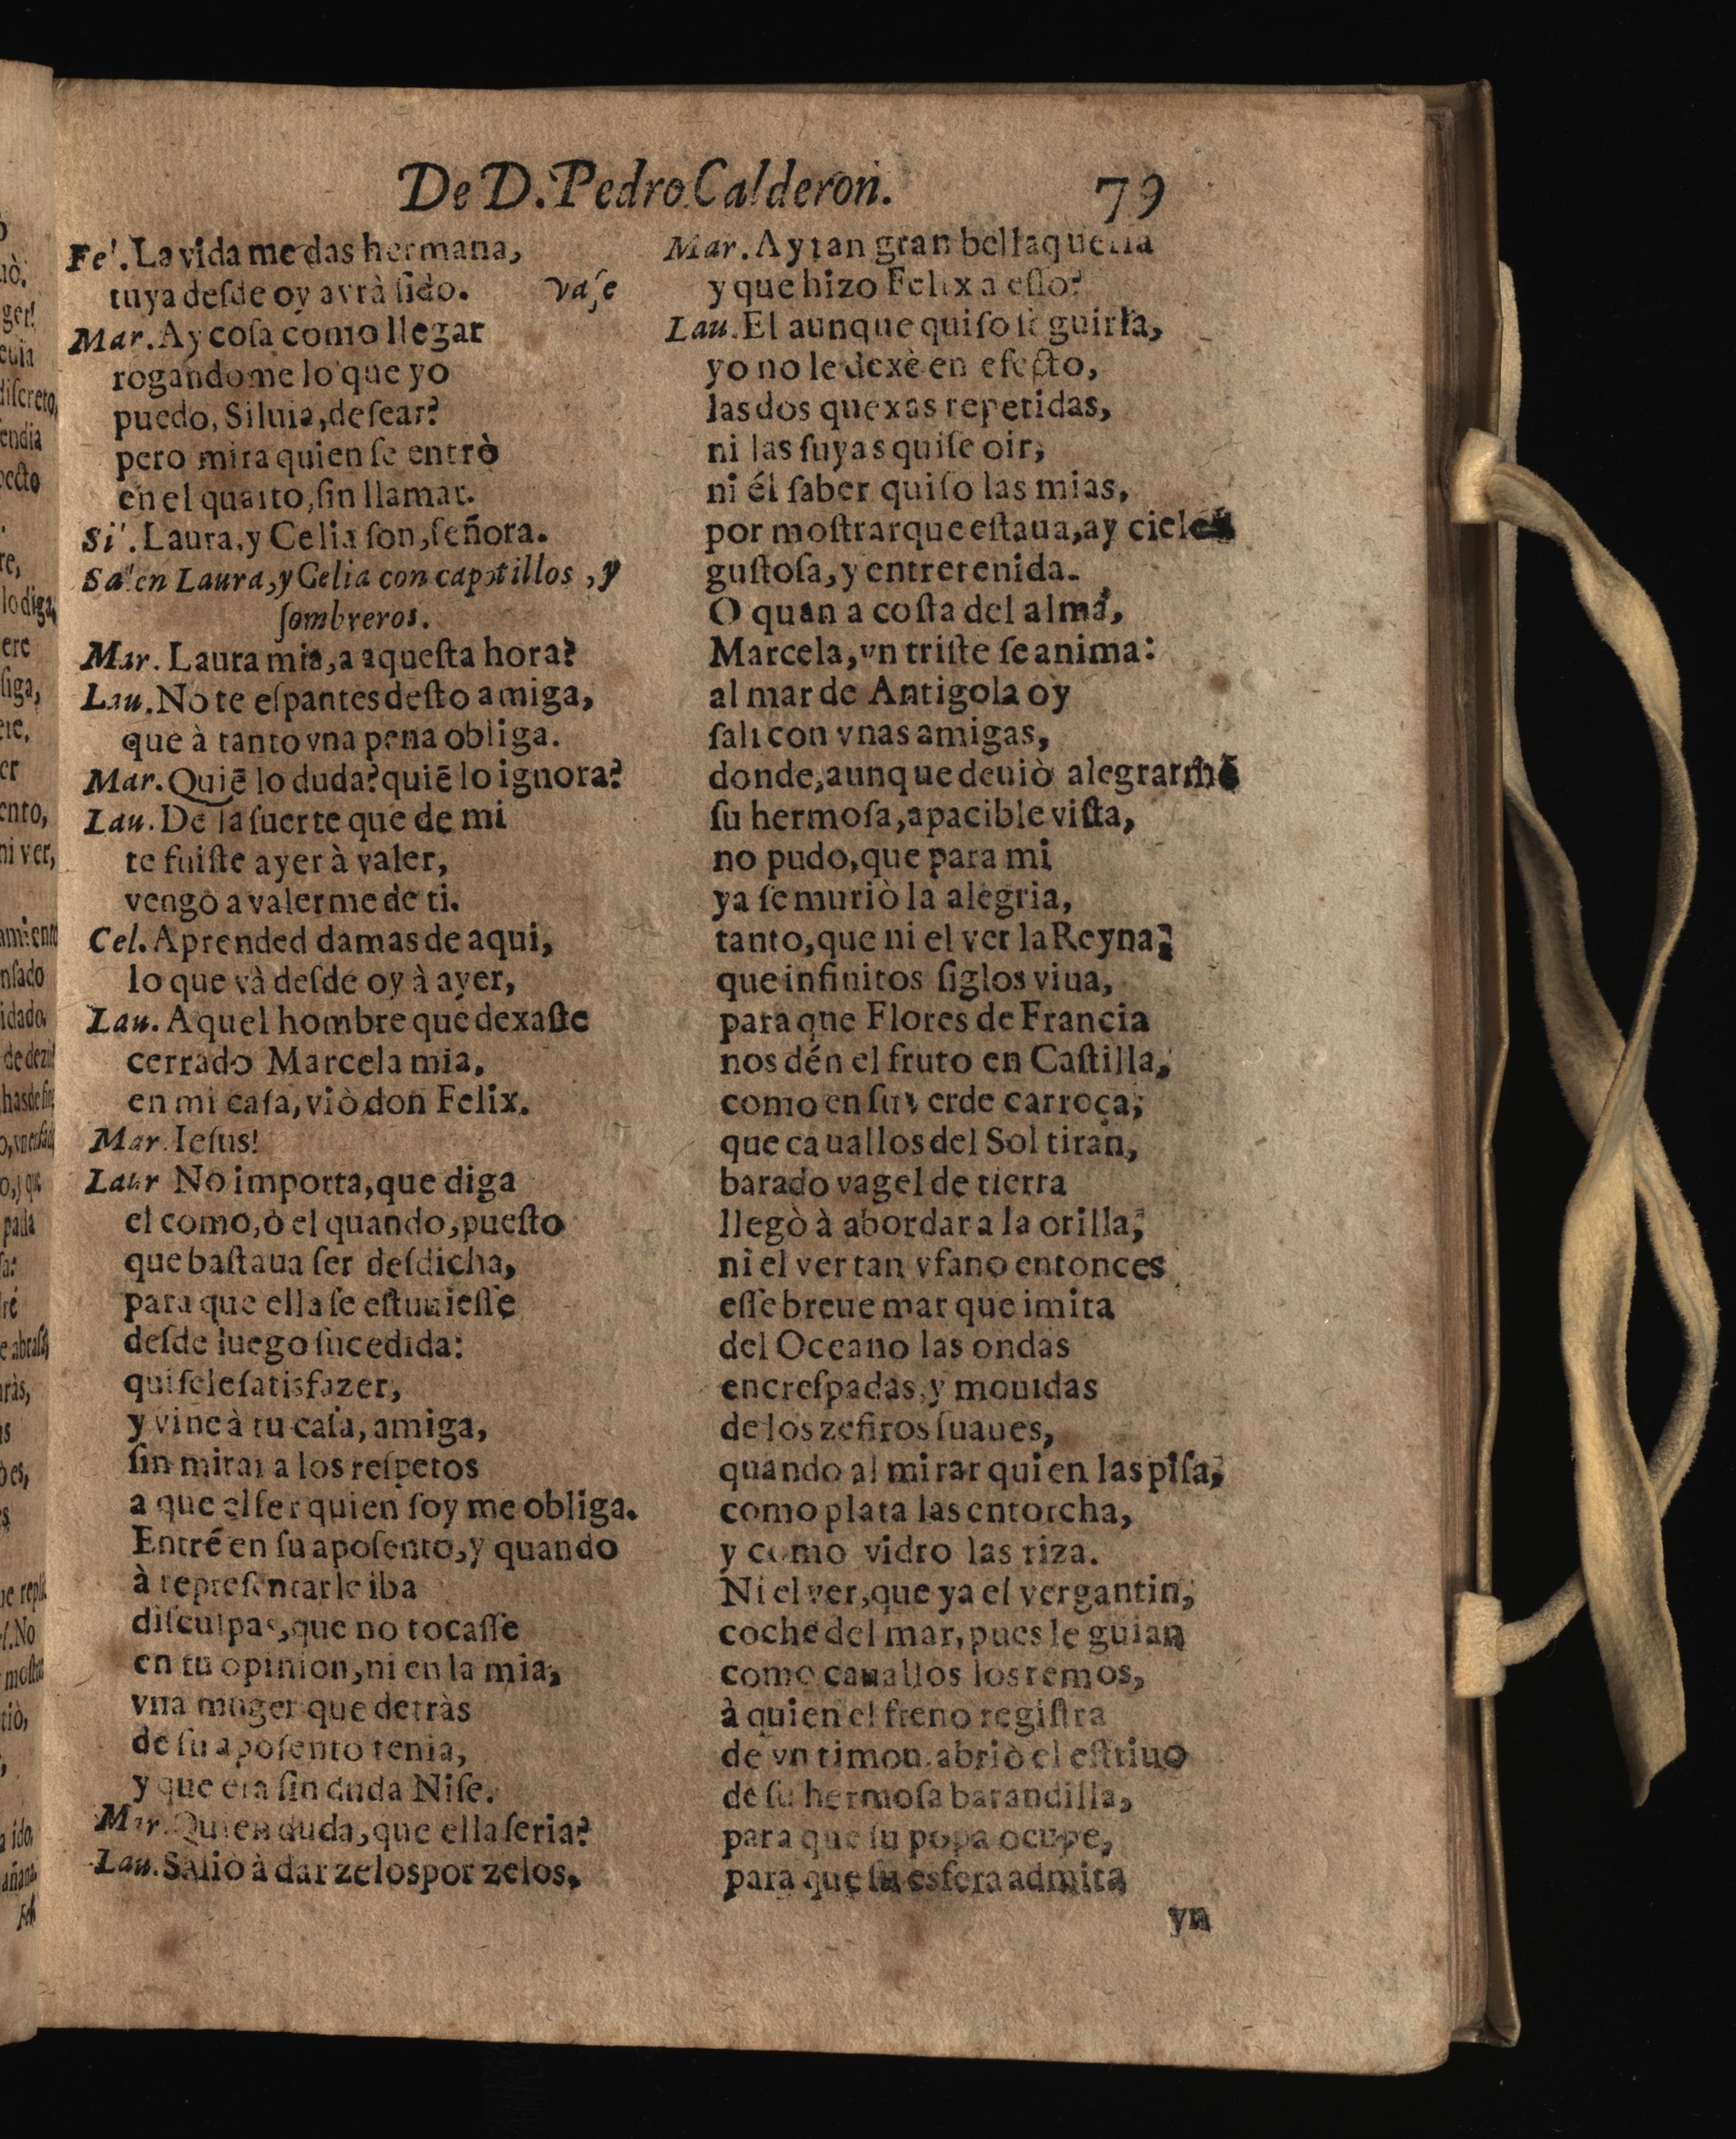 De D. Pedro Calderon. 79
Fel. La vida me das hermana,
tuya desde oy avrà sido. vase
Mar. Ay cosa como llegar
rogandome lo que yo
puedo, Siluia, desear?
pero mira quien se entrò
en el quarto, sin llamar.
Sil. Laura, y Celia son, señora.
Salen Laura, y Celia con capotillos, y
sombreros.
Mar. Laura mia, a aquesta hora?
Lau. No te espantes desto amiga,
que à tanto vna pena obliga.
Mar. Quiē lo duda? quiē lo ignora?
Lau. De la suerte que de mi
te fuiste ayer à valer,
vengo a valerme de ti.
Cel. Aprended damas de aqui,
lo que và desde oy à ayer,
Lau. Aquel hombre que dexaste
cerrado Marcela mia,
en mi casa, viò don Felix.
Mar. Iesus!
Laur No importa, que diga
el como, ò el quando, puesto
que bastaua ser desdicha,
para que ella se estuuiesse
desde luego sucedida:
quisele satisfazer,
y vine à tu casa, amiga,
sin mirar a los respetos
a que el ser quien soy me obliga.
Entré en su aposento, y quando
à representarle iba
disculpas, que no tocasse
en tu opinion, ni en la mia,
vna muger que detràs
de su aposento tenia,
y que era sin duda Nise.
Mar. Quien duda, que ella seria?
Lau. Saliò à dar zelos por zelos,
Mar. Ay tan gran bellaqueria
y que hizo Felix a esso?
Lau. El aunque quiso seguirla,
yo no le dexè en efecto,
las dos quexas repetidas,
ni las suyas quise oir,
ni él saber quiso las mias,
por mostrar que estaua, ay cielos
gustosa, y entretenida.
O quan a costa del alma,
Marcela, vn triste se anima:
al mar de Antigola oy
sali con vnas amigas,
donde, aunque deuiò alegrarme
su hermosa, apacible vista,
no pudo, que para mi
ya se muriò la alegria,
tanto, que ni el ver la Reyna,
que infinitos siglos viua,
para qne Flores de Francia
nos dén el fruto en Castilla,
como en su verde carroça,
que cauallos del Sol tiran,
barado vagel de tierra
llegò à abordar a la orilla,
ni el ver tan vfano entonces
esse breue mar que imita
del Oceano las ondas
encrespadas, y mouidas
de los zefiros suaues,
quando al mirar quien las pisa,
como plata las entorcha,
y como vidro las riza.
Ni el ver, que ya el vergantin,
coche del mar, pues le guian
como cauallos los remos,
à quien el freno registra
de vn timon, abriò el estriuo
de su hermosa barandilla,
para que su popa ocupe,
para que su esfera admita
vn